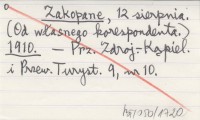 Zakopane, 12 sierpnia.
(Od własnego korespondenta.)
1910. — Prz. Zdroj.-Kąpiel.
i Przew. Turyst. 9, nr 10.